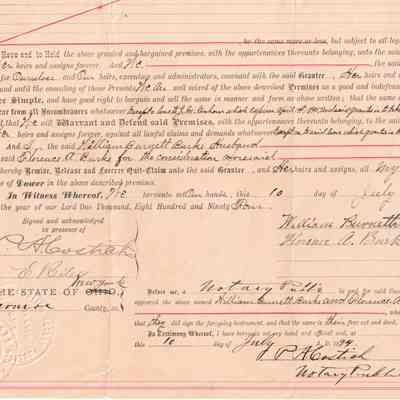 be the same more or less, but subject to all leg
Have and to Hold the above granted and bargained premises, with the appurtenances thereunto belonging, unto the said
er heirs and assigns forever. And We
for Ourselves and Our heirs, executors and administrators, covenant with the said Grantee, Her heirs and
and until the ensealing of these Presents We are well seized of the above described Premises as a good and indefeas
ee Simple, and have good right to bargain and sell the same in manner and form as above written; that the same
ear from all Incumbrances whatsoever
that We will Warrant and Defend said Premises, with the appurtenances thereunto belonging, to the said
er Heirs and assigns forever, against all lawful claims and demands whatsoever
And I, the said William Burnett Burke Husband
said Florence A. Burke for the consideration
hereby Remise, Release and Forever Quit-Claim unto the said Grantee and Her heirs and assigns, all my
of Dower in the above described premises.
In Witness Whereof, We hereunto set Our hands, this 10 day of July
the year of our Lord One Thousand, Eight Hundred and Ninety Four.
Signed and acknowledged
in presence of
William Burnett
Florence A. Burk
New York
THE STATE OF OHIO,
Monroe County,
Before me, a Notary Public in and for said
appeared the above named William Burnett Burke and Florence A
that they did sign the foregoing instrument, and that the same is their free act and deed.
In Testimony Whereof, I have hereunto set my hand and official seal, at
this 10 day of July
Notary Public